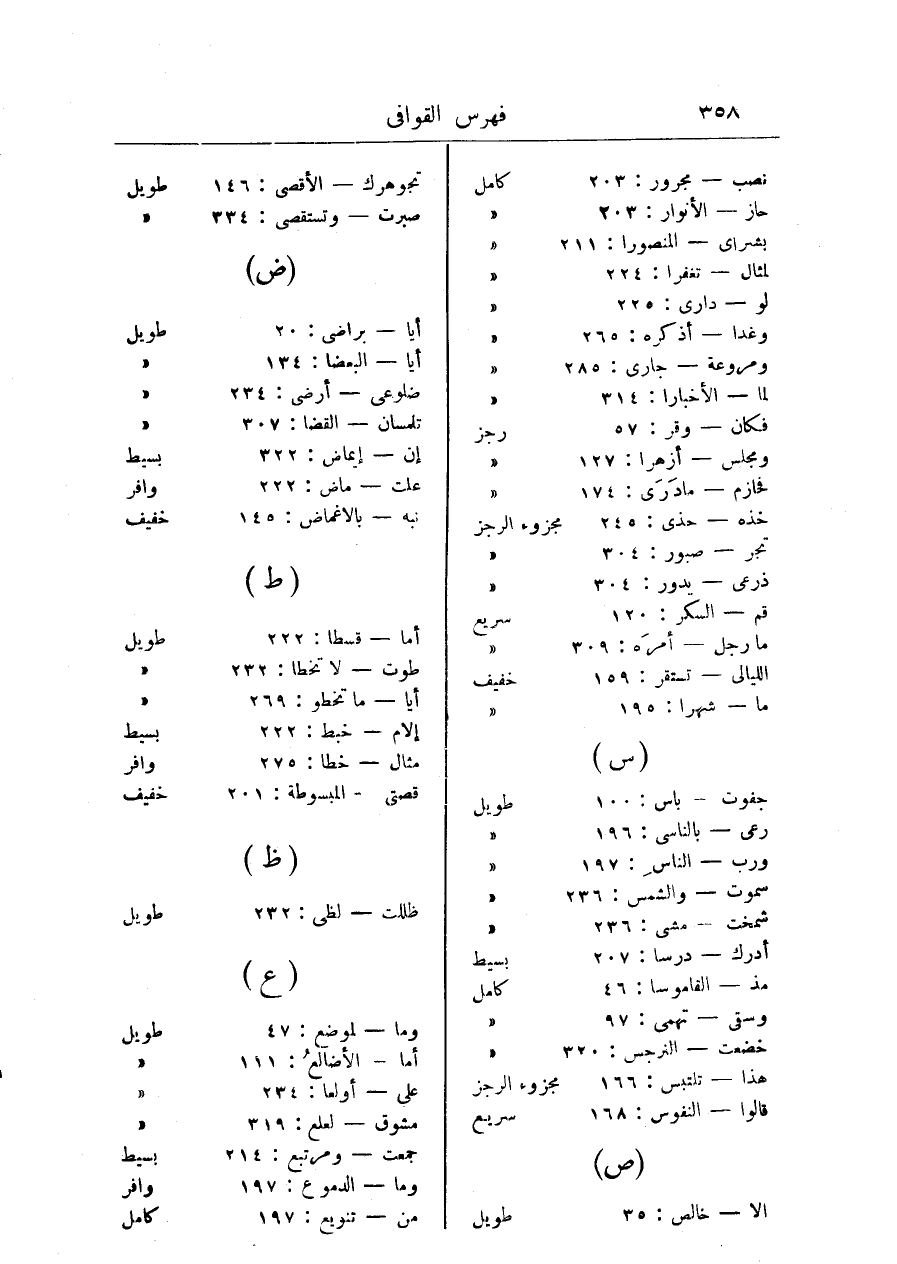 ٣٥٨
فهرس القوافى
نصب — مجرور : ٢٠٣ كامل
حاز — الأنوار : ٢٠٣ »
بشراى — المنصورا : ٢١١ »
لمثال — تغفرا : ٢٢٤ »
لو — دارى : ٢٢٥ »
وغدا — أذكره : ٢٦٥ »
ومروعة — جارى : ٢٨٥ »
لما — الأخبارا : ٣١٤ »
فكان — وقر : ٥٧ رجز
ومجلس — أزهرا : ١٢٧ »
فحازم — مادَرَى : ١٧٤ »
خذه — حذى : ٢٤٥ مجزوء الرجز
تجر — صبور : ٣٠٤ »
ذرعى — يدور : ٣٠٤ »
قم — السكر : ١٢٠ سريع
ما رجل — أمرَه : ٣٠٩ »
الليالى — تستقر : ١٥٩ خفيف
ما — شهرا : ١٩٥ »
( س )
جفوت — باس : ١٠٠ طويل
رعى — بالناسى : ١٩٦ »
ورب — الناسِ : ١٩٧ »
سموت — والشمس : ٢٣٦ »
شمخت — مشى : ٢٣٦ »
أدرك — درسا : ٢٠٧ بسيط
مذ — القاموسا : ٤٦ كامل
وسقى — تهمى : ٩٧ »
خضعت — النرجس : ٣٢٠ »
هذا — تلتبس : ١٦٦ مجزوء الرجز
قالوا — النفوس : ١٦٨ سريع
( ص )
الا — خالص : ٣٥ طويل
تجوهرك — الأقصى : ١٤٦ طويل
صبرت — وتستقصى : ٣٣٤ »
( ض )
أيا — براضى : ٢٠ طويل
أيا — البعضا : ١٣٤ »
ضلوعى — أرضى : ٢٣٤ »
تلمسان — القضا : ٣٠٧ »
إن — إيماض : ٣٢٢ بسيط
علت — ماض : ٢٢٢ وافر
نبه — بالاغماض : ١٤٥ خفيف
( ط )
أما — قسطا : ٢٢٢ طويل
طوت — لا تخطا : ٢٣٢ »
أيا — ما تخطو : ٢٦٩ »
إلام — خبط : ٢٢٢ بسيط
مثال — خطا : ٢٧٥ وافر
قصتى - المبسوطة : ٢٠١ خفيف
( ظ )
ظللت — لظى : ٢٣٢ طويل
( ع )
وما — لموضع : ٤٧ طويل
أما — الأضالعُ : ١١١ »
على — أولعا : ٢٣٤ »
مشوق — لعلع : ٣١٩ »
جمعت — ومرتبع : ٢١٤ بسيط
وما — الدموع : ١٩٧ وافر
من — تنويع : ١٩٧ كامل